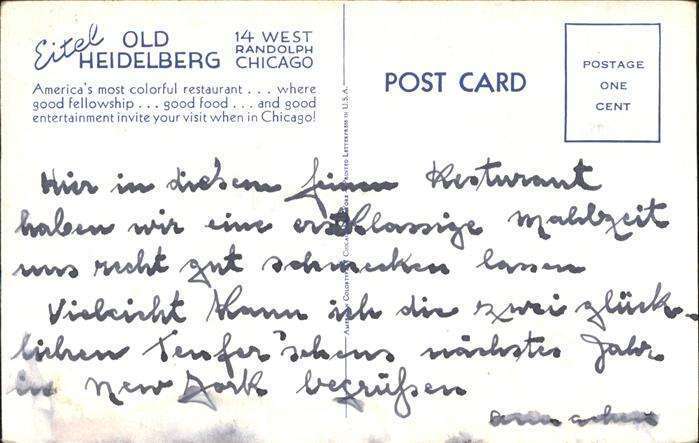 Eitel OLD HEIDELBERG
14 WEST RANDOLPH CHICAGO
America's most colorful restaurant . . . where
good fellowship . . . good food . . . and good
entertainment invite your visit when in Chicago!
POST CARD
POSTAGE
ONE
CENT
Hier in diesem feinen Resturant
haben wir eine erstklassige Mahlzeit
uns recht gut schmecken lassen
Vieleicht kann ich die zwei glück-
lichen Teufer'shens nächstes Jahr
in New York begrüßen